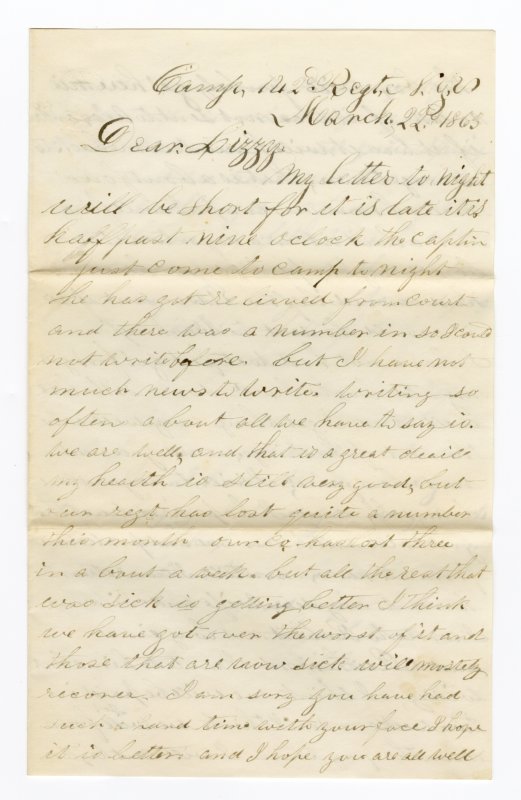 Camp, 142d Regt. N.Y.V
March, 22d. 1863
Dear. Lizzy.
My letter to night
will be short for it is late it is
haff past nine o clock the captin
just come to camp to night
he has got recieved from court
and there was a number in so I could
not write before. but I have not
much news to write. writing so
often a bout all we have to say is.
we are well, and that is a great deall
my health is still very good, but
our regt has lost quite a number
this month our Co. has lost three
in a bout a week. but all the rest that
was sick is getting better I think
we have got over the worst of it and
those that are now sick will mostely
recover, I am sory you have had
such a hard time with your face I hope
it is better. and I hope you are all well